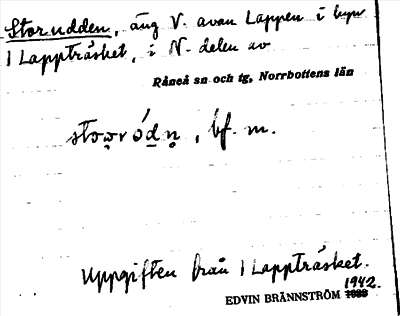 Storudden, äng V. ovan Lappen i byn
1 Lappträsket, i N. delen av
Råneå sn och tg, Norrbottens län
bf. m.
Uppgiften från 1 Lappträsket.
1942.
EDVIN BRÄNNSTRÖM 1938